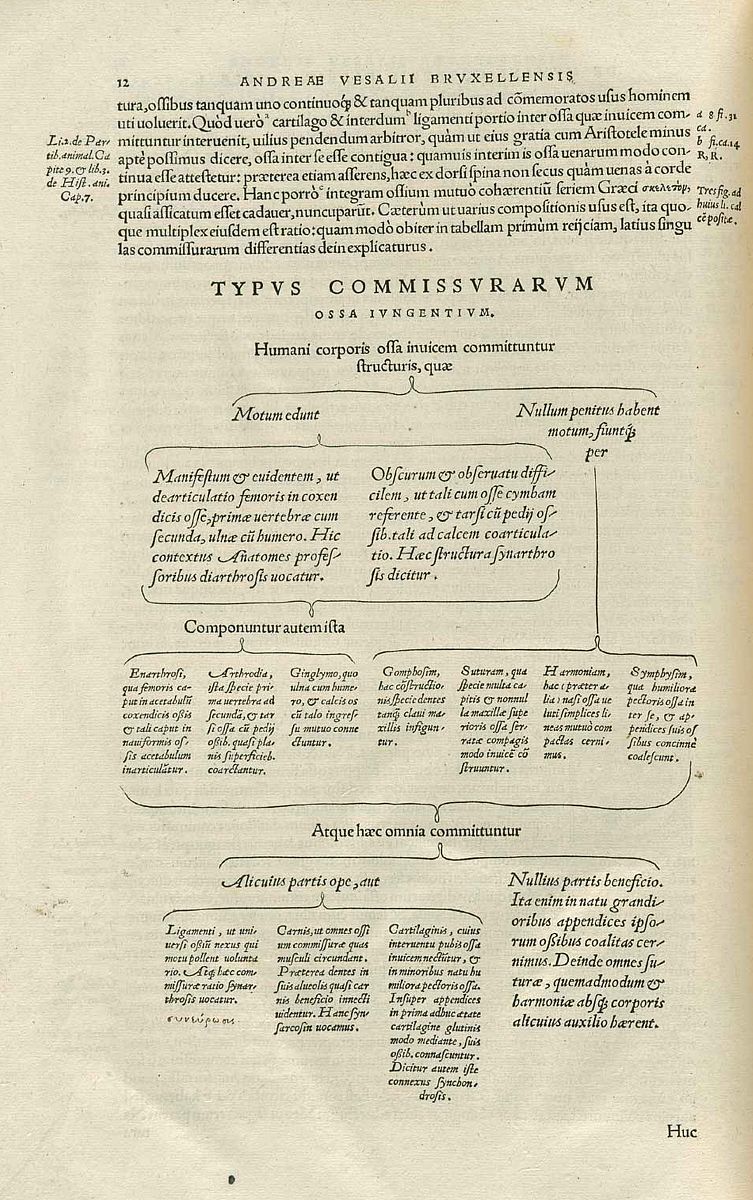 12
ANDREAE VESALII BRVXELLENSIS
tura, ossibus tanquam uno continuoq́; & tanquam pluribus ad cõmemoratos usus hominem
uti uoluerit. Quòd uerò ᵃ cartilago & interdum ᵇ ligamenti portio inter ossa quæ inuicem com-
mittuntur interuenit, uilius pendendum arbitror, quàm ut eius gratia cum Aristotele minus
aptè possimus dicere, ossa inter se esse contigua: quamuis interim is ossa uenarum modo con-
tinua esse attestetur: præterea etiam asserens, hæc ex dorsi spina non secus quàm uenas à corde
principium ducere. Hanc porrò ᶜ integram ossium mutuò cohærentiũ seriem Græci σκελετον,
quasi assicatum esset cadauer, nuncuparũt. Cæterùm ut uarius compositionis usus est, ita quo-
que multiplex eiusdem est ratio: quam modò obiter in tabellam primùm reijciam, latius singu
las commissurarum differentias dein explicaturus.
Li.2. de Par-
tib. animal. Ca
pite 9. & lib. 3.
de Hist. ani.
Cap. 7.
a 8 fi. 31
ca.
b fi. ca. 14
R, R.
Tres fig. ad
huius li. cal
cẽ positæ.
TYPVS COMMISSVRARVM
OSSA IVNGENTIVM.
Humani corporis ossa inuicem committuntur
structuris, quæ
Motum edunt
Nullum penitus habent
motum, fiuntq́;
per
Manifestum & euidentem, ut
dearticulatio femoris in coxen
dicis osse, primæ uertebræ cum
secunda, ulnæ cũ humero. Hic
contextus Anatomes profes-
soribus diarthrosis uocatur.
Obscurum & obseruatu diffi-
cilem, ut tali cum osse cymbam
referente, & tarsi cũ pedij os-
sib. tali ad calcem coarticula-
tio. Hæc structura synarthro
sis dicitur.
Componuntur autem ista
Enarthrosi,
qua femoris ca-
put in acetabulũ
coxendicis oßis
& tali caput in
nauiformis os-
sis acetabulum
inarticulãtur.
Arthrodia,
ista specie pri-
ma uertebra ad
secundã, & tar
si ossa cũ pedij
oßib. quasi pla-
nis superficieb.
coarctantur.
Ginglymo, quo
ulna cum hume-
ro, & calcis os
cũ talo ingres-
su mutuo conne
ctuntur.
Gomphosim,
hac cõstructio-
nis specie dentes
tanq̃ claui ma-
xillis infigun-
tur.
Suturam, qua
specie multa ca-
pitis & nonnul
la maxillæ supe
rioris ossa ser-
ratæ compagis
modo inuicẽ cõ
struuntur.
Harmoniam,
hac (præter a-
lia) nasi ossa ue
luti simplices li-
neas mutuò com
pactas cerni-
mus.
Symphysim,
qua humiliora
pectoris ossa in
ter se, & ap-
pendices suis os
sibus concinnè
coalescunt.
Atque hæc omnia committuntur
Alicuius partis ope, aut
Nullius partis beneficio.
Ita enim in natu grandi-
oribus appendices ipso-
rum oßibus coalitas cer-
nimus. Deinde omnes su-
turæ, quemadmodum &
harmoniæ absq; corporis
alicuius auxilio hærent.
Ligamenti, ut uni-
uersi oßiũ nexus qui
motu pollent volunta
rio. Atq; hæc com-
missuræ ratio synar-
throsis uocatur.
συνεύρωσις
Carnis, ut omnes ossi
um commissuræ quas
musculi circundant.
Præterea dentes in
suis alueolis quasi car
nis beneficio innecti
uidentur. Hanc syn-
sarcosin uocamus.
Cartilaginis, cuius
interuentu pubis ossa
inuicem nectũtur, &
in minoribus natu hu
miliora pectoris ossa.
Insuper appendices
in prima adhuc ætate
cartilagine glutinis
modo mediante, suis
oßib. connascuntur.
Dicitur autem iste
connexus synchon-
drosis.
Huc